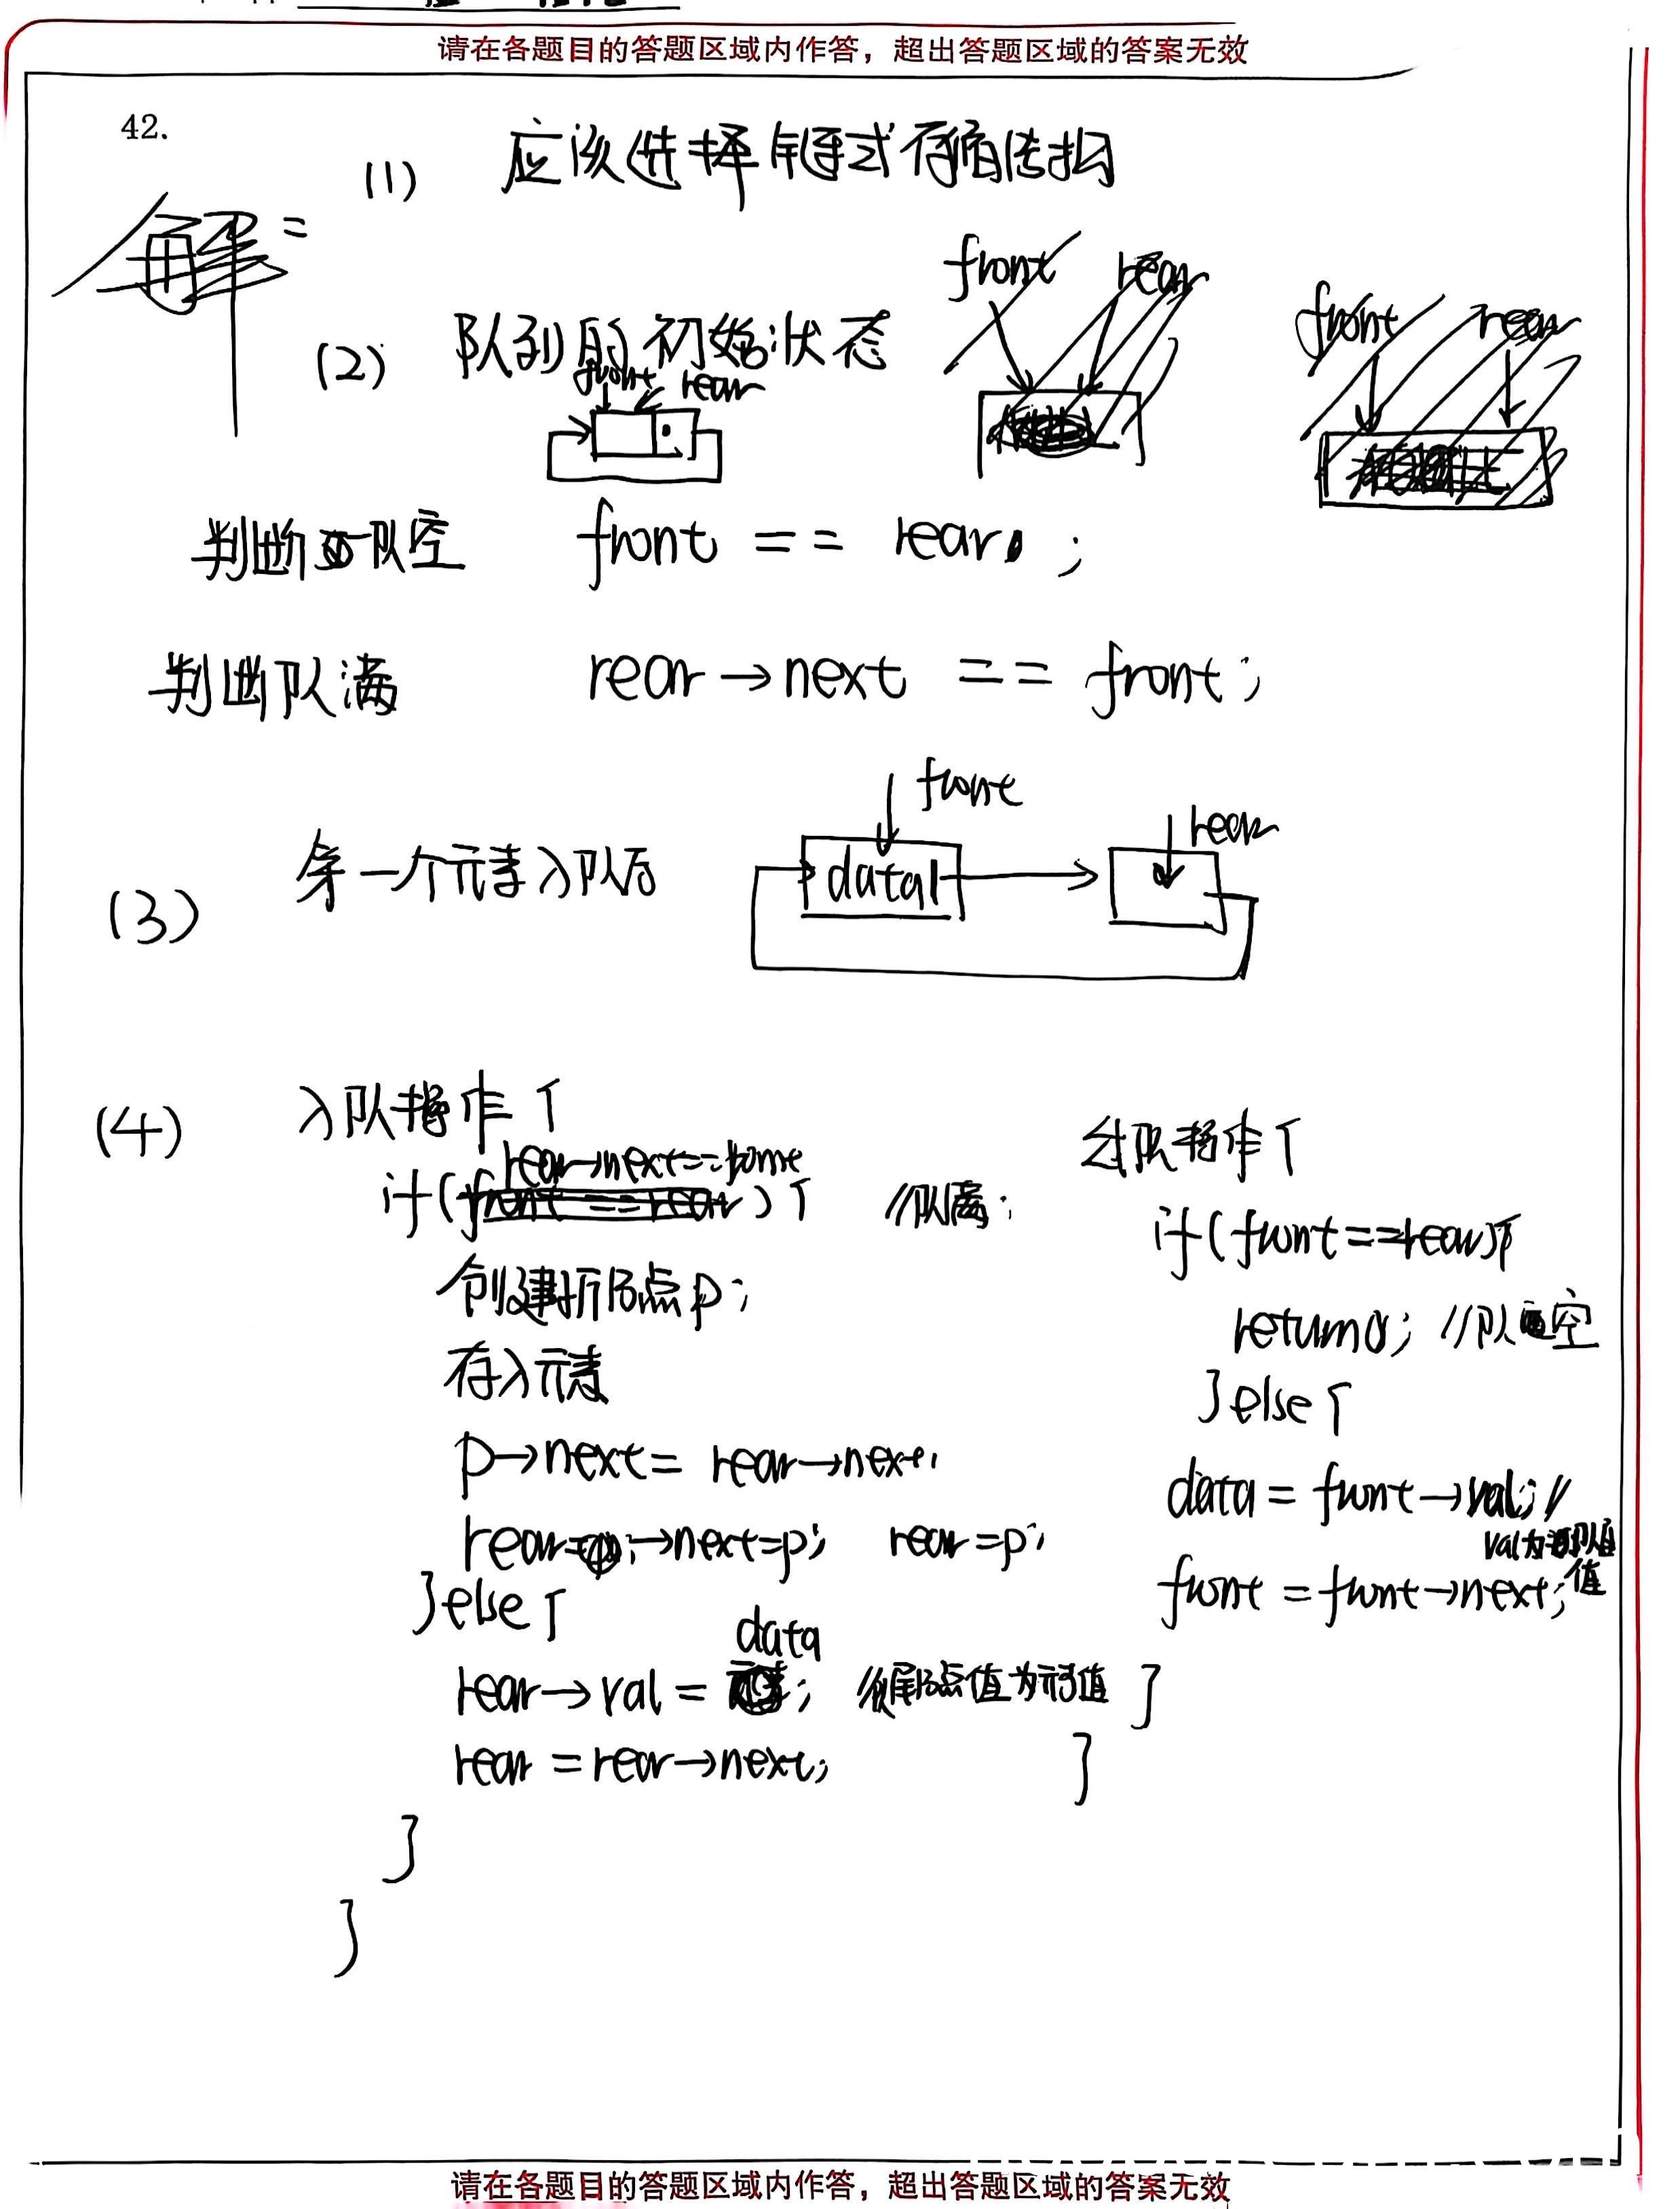 请在各题目的答题区域内作答，超出答题区域的答案无效
42.
解：
(1) 应该选择链式存储结构
(2) 队列的初始状态
front rear
front rear
front rear
判断队空 front == rear ;
判断队满 rear→next == front;
(3) 第一个元素入队后
front
rear
data1
(4) 入队操作{
if(rear→next==front){ //队满;
创建新节点p;
存入元素
p→next= rear→next;
rear→next=p; rear=p;
}else{
rear→val = data; //尾节点值为元素值
rear = rear→next;
}
}
出队操作{
if(front==rear){
return 0; //队空
}else{
data = front→val; //
val为
值
front = front→next;
}
}
请在各题目的答题区域内作答，超出答题区域的答案无效